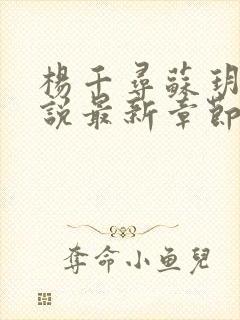 楊千尋蘇玥
說最新章節
奪命小鱼兒